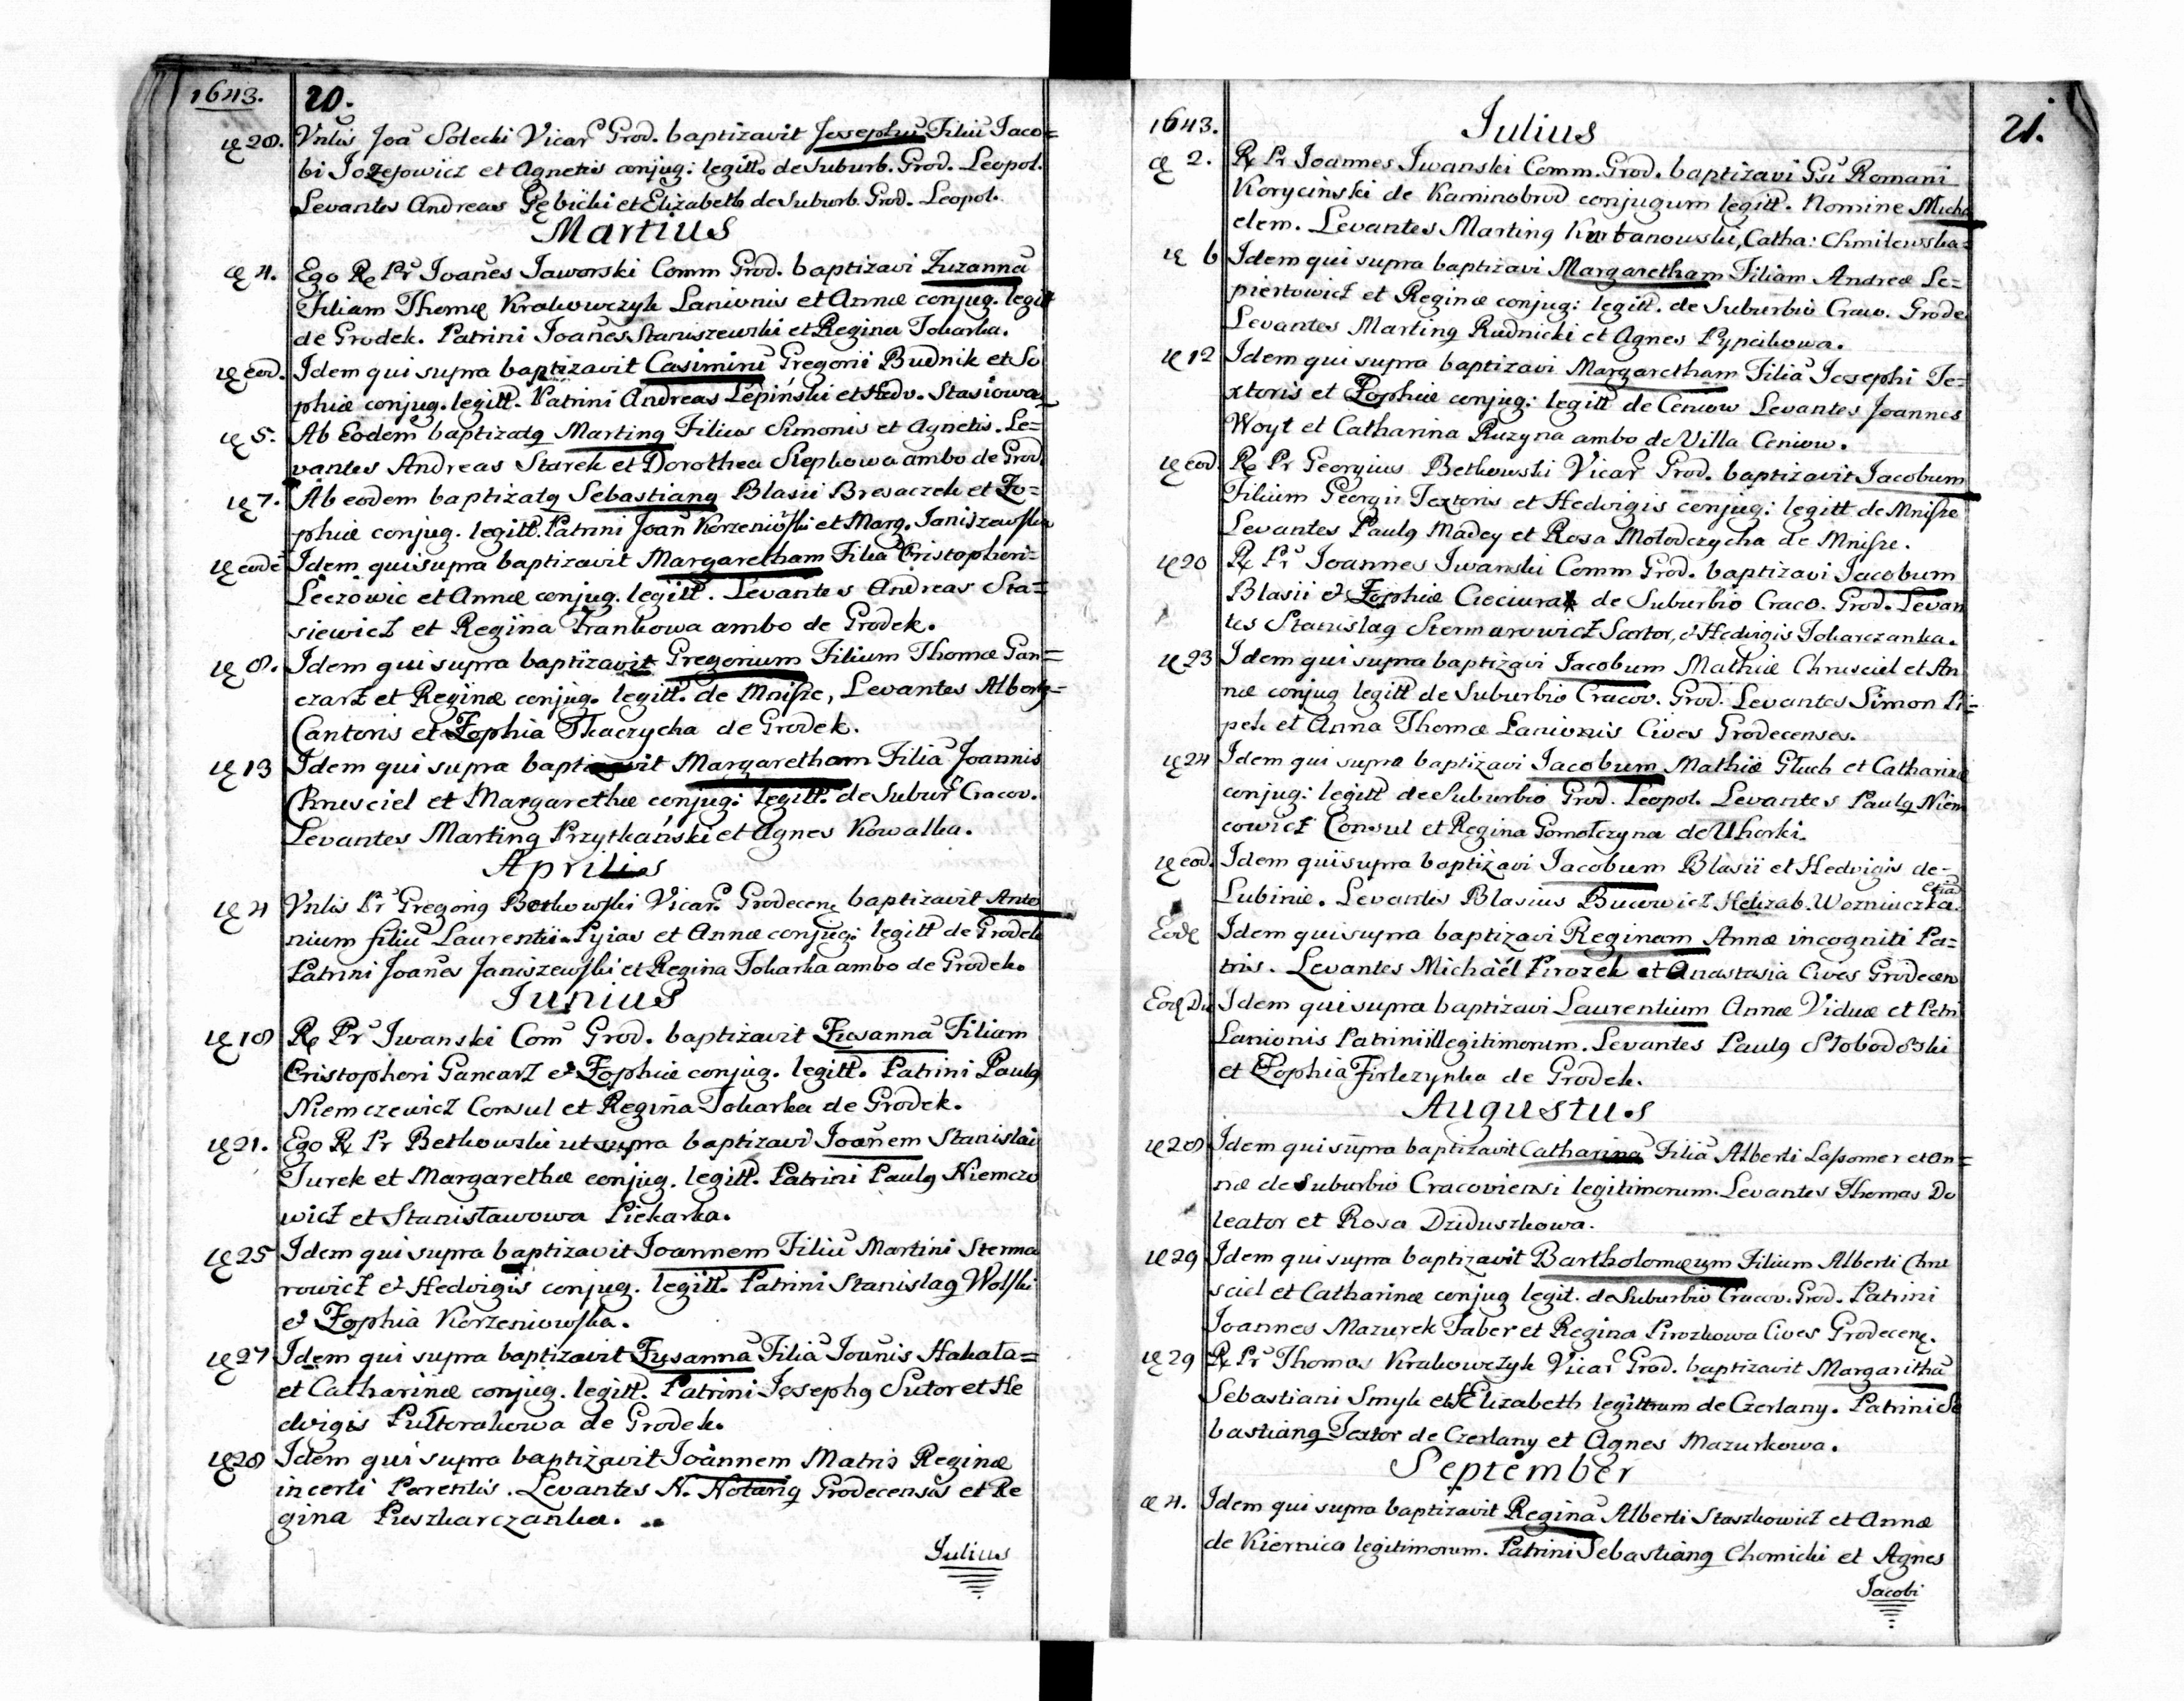 1643. 20.
æ 28. Vnlis Joā Solecki Vicar Grod. baptizavit Josephū Filiū Jaco=
bi Jozefowicz et Agnetis conjug: legitt. de Suburb. Grod. Leopol.
Levantes Andreas Gębicki et Elizabeth de Suburb. Grod. Leopol.
Martius
æ 4. Ego R. Pr Joanēs Jaworski Comm Grod. baptizavi Zuzannā
Filiam Thomæ Krakowczyk Lanionis et Annæ conjug. legitt
de Grodek. Patrini Joanēs Staniszewski et Regina Tokarka.
æ eod. Idem qui supra baptizavit Casimirū Gregorii Budnik et So
phiæ conjug. legitt. Patrini Andreas Lepiński et Hedv. Stasiowa
æ 5. Ab Eodem baptizatq Martinq Filius Simonis et Agnetis. Le=
vantes Andreas Starek et Dorothea Slepkowa ambo de Grod.
æ 7. Ab eodem baptizatq Sebastianq Blasii Bresaczek et Zo=
phiæ conjug. legitt. Patrini Joan Korzeniowski et Marg. Janiszewska
æ eodē Idem qui supra baptizavit Margaretham Filiā Cristopheri
Leczowic et Annæ conjug. legitt. Levantes Andreas Sta=
siewicz et Regina Frankowa ambo de Grodek.
æ 8. Idem qui supra baptizavit Gregorium Filium Thomæ Gan=
czarz et Reginæ conjug. legitt. de Mnisze, Levantes Albertq
Cantoris et Zophia Tkaczycha de Grodek.
æ 13 Idem qui supra baptizavit Margaretham Filiā Joannis
Chrusciel et Margarethæ conjug: legitt. de Subur Cracov.
Levantes Martinq Przytkański et Agnes Kowalka.
Aprilis
æ 4 Vnlis Pr Gregoriq Betkowski Vicar. Grodecenę baptizavit Anto
nium filiū Laurentii Pyias et Annæ conjug: legitt de Grodek
Patrini Joanēs Janiszewski et Regina Tokarka ambo de Grodek.
Junius
æ 18 R. Pr Iwanski Com Grod. baptizavit Zusannā Filiam
Cristopheri Gancarz et Zophiæ conjug. legitt. Patrini Paulq
Niemczewicz Consul et Regina Tokarka de Grodek.
æ 21. Ego R. Pr Betkowski ut supra baptizavi Joanem Stanislai
Turek et Margarethæ conjug. legitt. Patrini Paulq Niemczo
wicz et Stanisławowa Piekarka.
æ 25 Idem qui supra baptizavit Joannem Filiū Martini Sterma
rowicz et Hedvigis conjug. legitt. Patrini Stanislaq Wolski
et Zophia Korzeniowska.
æ 27 Idem qui supra baptizavit Zusannā Filiā Joanis Hakała=
et Catharinæ conjug. legitt. Patrini Josephq Sutor et He
dvigis Pułtorakowa de Grodek.
æ 28 Idem qui supra baptizavit Joannem Matris Reginæ
incerti Parentis. Levantes N. Notariq Grodecensis et Re
gina Puszkarczanka.
Julius
1643. Julius 21.
æ 2. R. Pr Joannes Iwanski Comm. Grod. baptizavi Gsi Romani
Korycinski de Kaminobrod conjugum legitt. Nomine Micha
elem. Levantes Martinq Kurbanowski, Catha: Chmilewska
æ 6 Idem qui supra baptizavi Margaretham Filiam Andreæ Le=
piertowicz et Reginæ conjug: legitt. de Suburbio Crac. Grode
Levantes Martinq Rudnicki et Agnes Pypcikowa.
æ 12 Idem qui supra baptizavi Margaretham Filiā Josephi Te=
xtoris et Zophiæ conjug: legitt de Ceniow Levantes Joannes
Woyt et Catharina Ruzyna ambo de Villa Ceniow.
æ eod R. Pr Georgius Betkowski Vicar Grod. baptizavit Jacobum
Filium Georgii Textoris et Hedvigis conjug: legitt de Mnisze
Levantes Paulq Madey et Rosa Mołodczycha de Mnisze.
æ 20 R. Pr Joannes Iwanski Comm Grod. baptizavi Jacobum
Blasii et Zophiæ Cieciura de Suburbio Craco. Grod. Levan
tes Stanislaq Stermarowicz Sartor, et Hedvigis Tokarczanka.
æ 23 Idem qui supra baptizavi Jacobum Mathiæ Chrusciel et An
næ conjug legitt de Suburbio Cracov. Grod. Levantes Simon Pi=
pek et Anna Thomæ Lanionis Cives Grodecenses.
æ 24 Idem qui supra baptizavi Jacobum Mathiæ Głuch et Catharinæ
conjug: legitt de Suburbio Grod. Leopol. Levantes Paulq Niem
cowicz Consul et Regina Gomołczyna de Uhorki.
æ eod. Idem qui supra baptizavi Jacobum Blasii et Hedvigis de=
Lubinie. Levantes Blasius Bucowicz Helizab. Wozniaczka
Eodę Idem qui supra baptizavi Reginam Annæ incogniti Pa=
tris. Levantes Michaël Pirozek et Anastasia Cives Grodecen
Eodę Die Idem qui supra baptizavi Laurentium Annæ Viduæ et Petri
Lanionis Patrini illegitimorum. Levantes Paulq Słobodski
et Zophia Firlezynka de Grodek.
Augustus
æ 28 Idem qui supra baptizavit Catharinā Filiā Alberti Lassomer et An=
næ de Suburbio Cracoviensi legitimorum. Levantes Thomas Do
leator et Rosa Dziduszkowa.
æ 29 Idem qui supra baptizavit Bartholomæum Filium Alberti Chru
sciel et Catharinæ conjug legit. de Suburbio Cracov. Grod. Patrini
Joannes Mazurek Faber et Regina Pirozkowa Cives Grodecenę.
æ 29 R. Pr Thomas Krakowczyk Vicar Grod. baptizavit Margarithā
Sebastiani Smyk et Elizabeth legittmum de Czerlany. Patrini Se
bastianq Textor de Czerlany et Agnes Mazurkowa.
September
æ 4. Idem qui supra baptizavit Reginā Alberti Staszkowicz et Annæ
de Kiernica legitimorum. Patrini Sebastianq Chomicki et Agnes
Jacobi